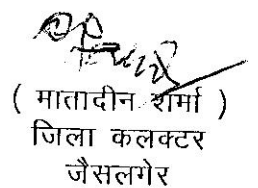 ( मातादीन शर्मा )
जिला कलक्टर
जैसलगेर